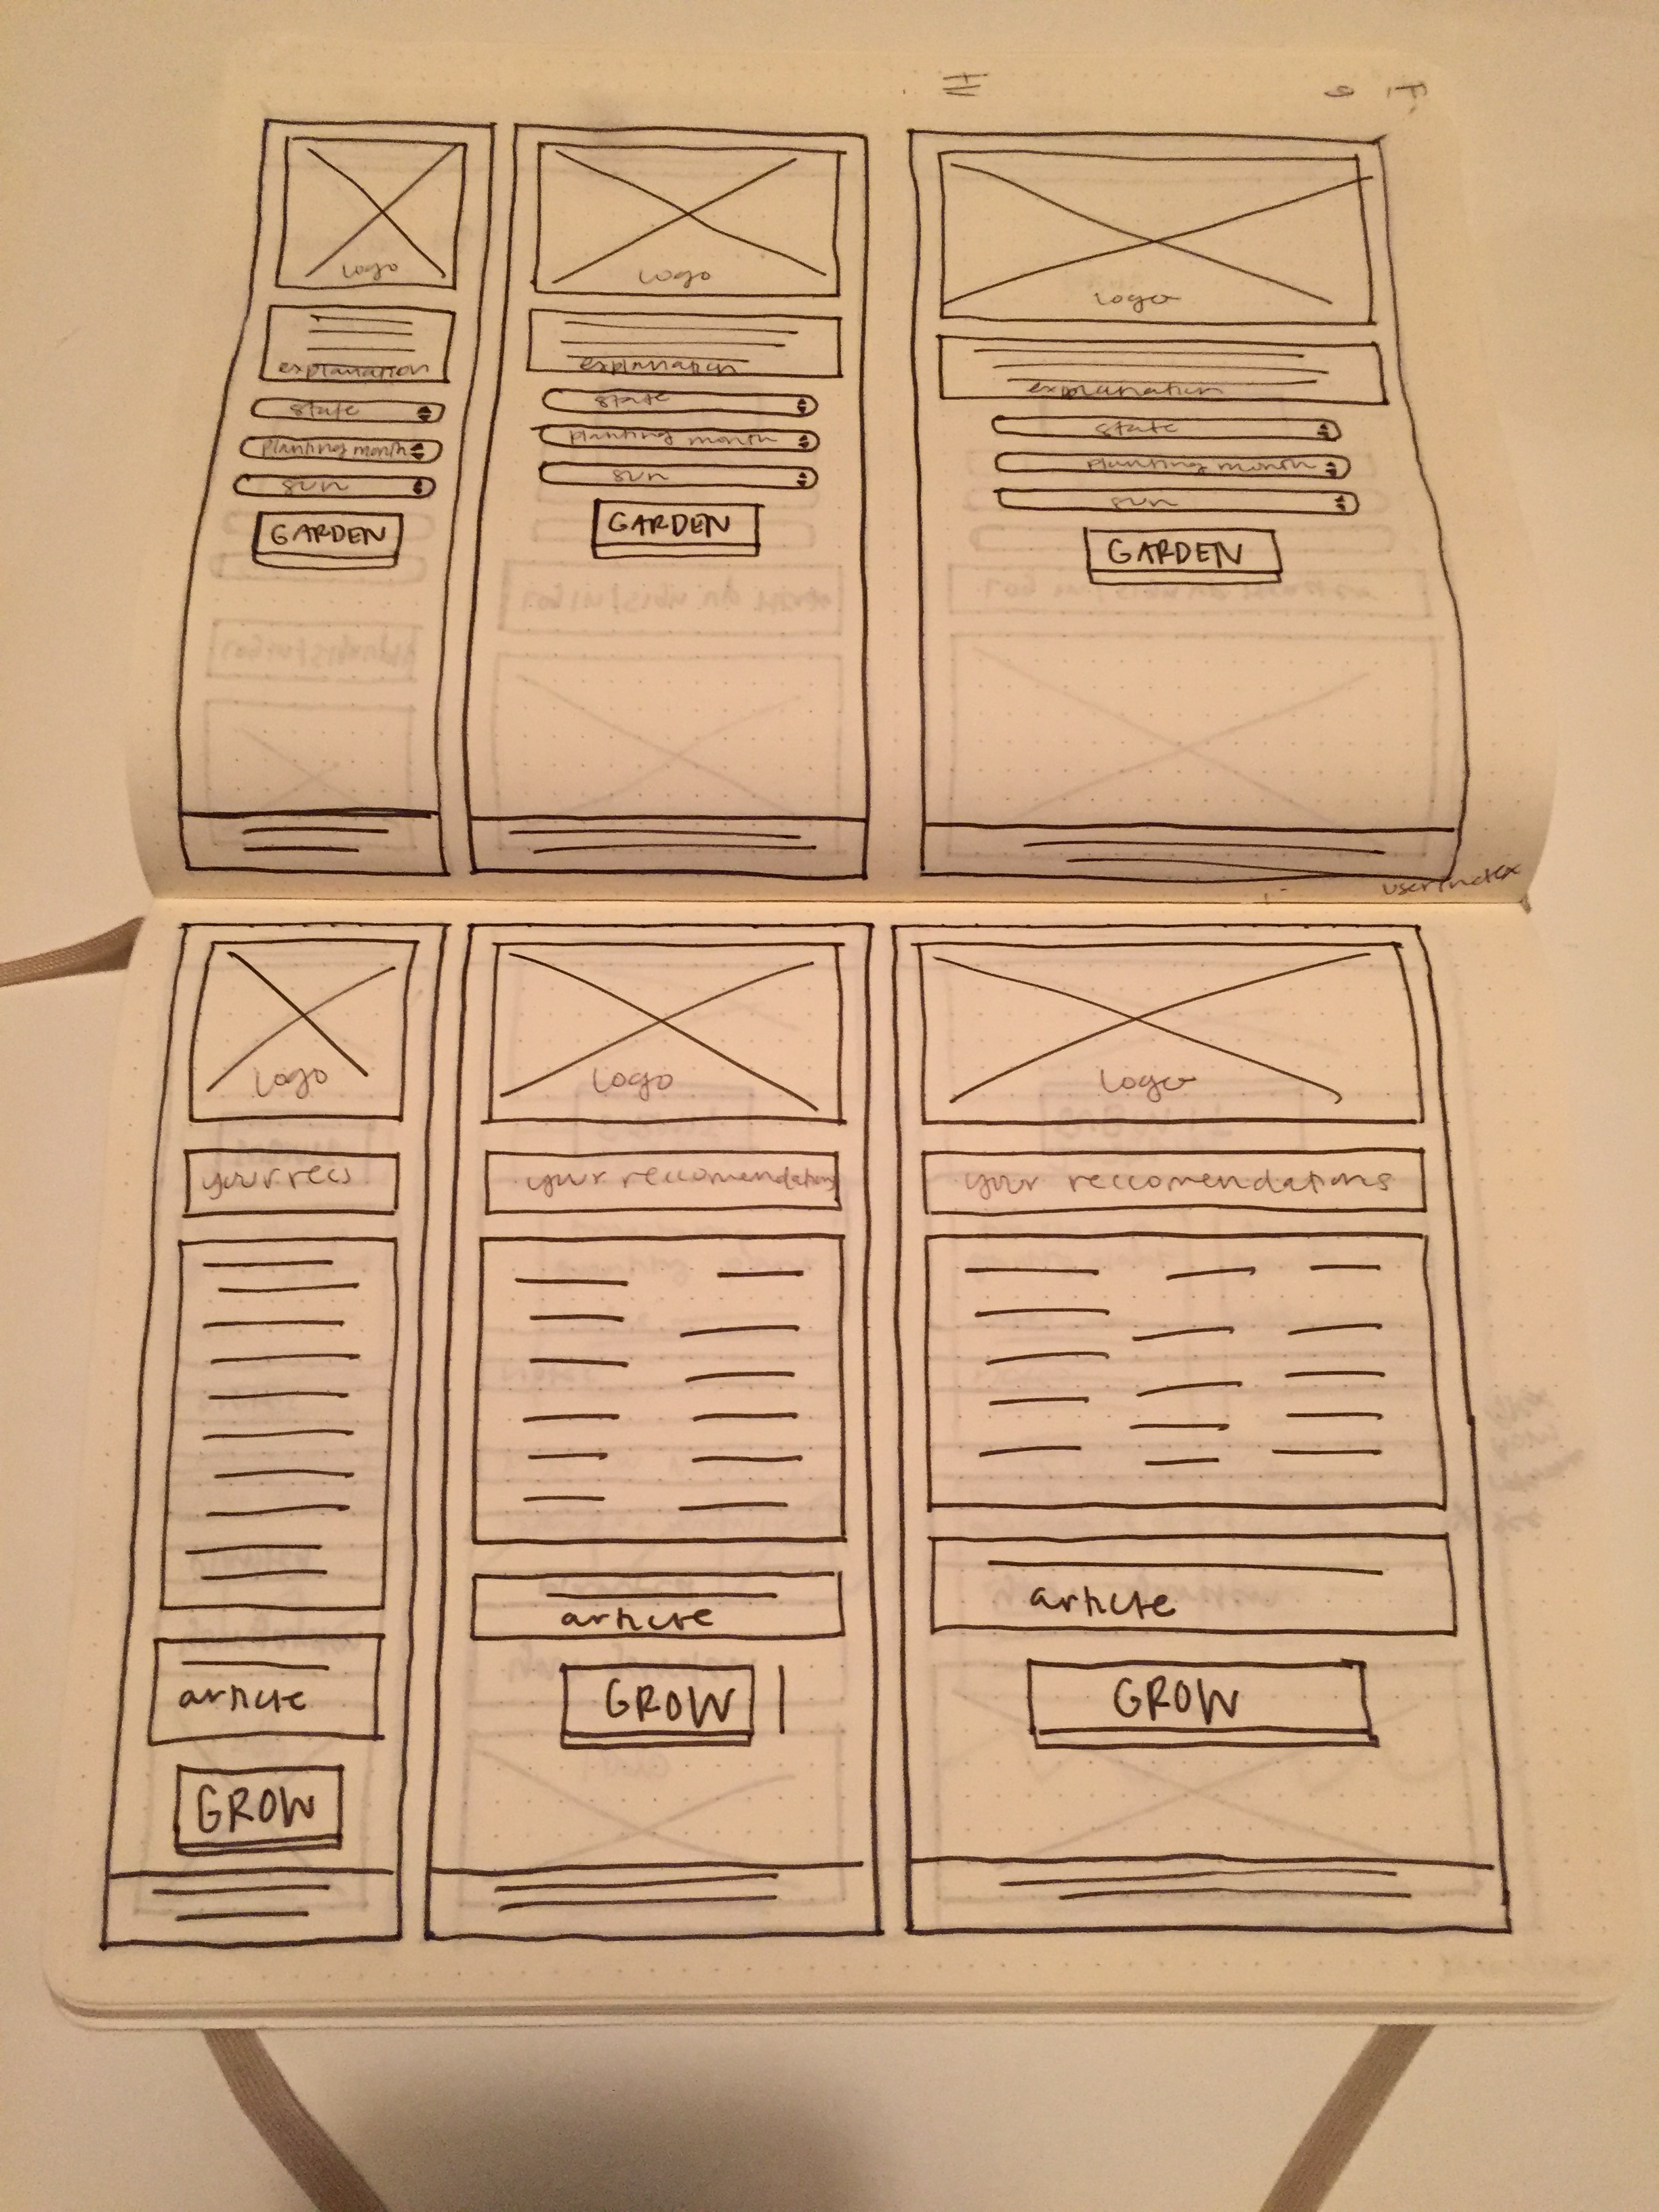 logo
explanation
state
planting month
sun
GARDEN
logo
explanation
state
planting month
sun
GARDEN
logo
explanation
state
planting month
sun
GARDEN
user index
logo
your recs
article
GROW
logo
your reccomendations
article
GROW
logo
your reccomendations
article
GROW